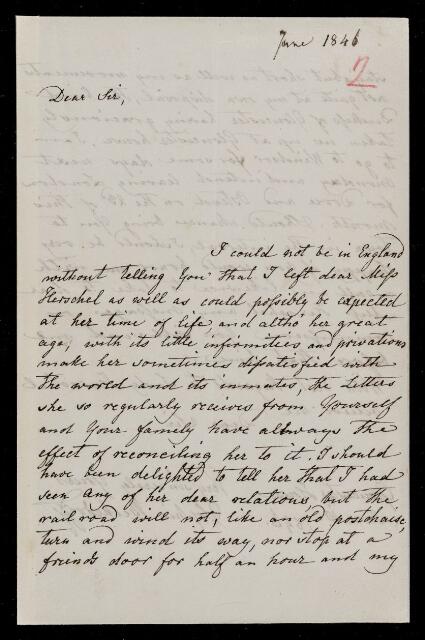 June 1846
2
Dear Sir,
I could not be in England
without telling You that I left dear Miss
Herschel as well as could possibly be expected
at her time of life, and altho' her great
age, with its little infirmities and privations
make her sometimes dissatisfied with
the world and its inmates, the Letters
she so regularly receives from Yourself
and Your family have always the
effect of reconciling her to it. I should
have been delighted to tell her that I had
seen any of her dear relations but the
rail road will not, like an old postchaise,
turn and wind its way, nor stop at a
friend's door for half an hour and my